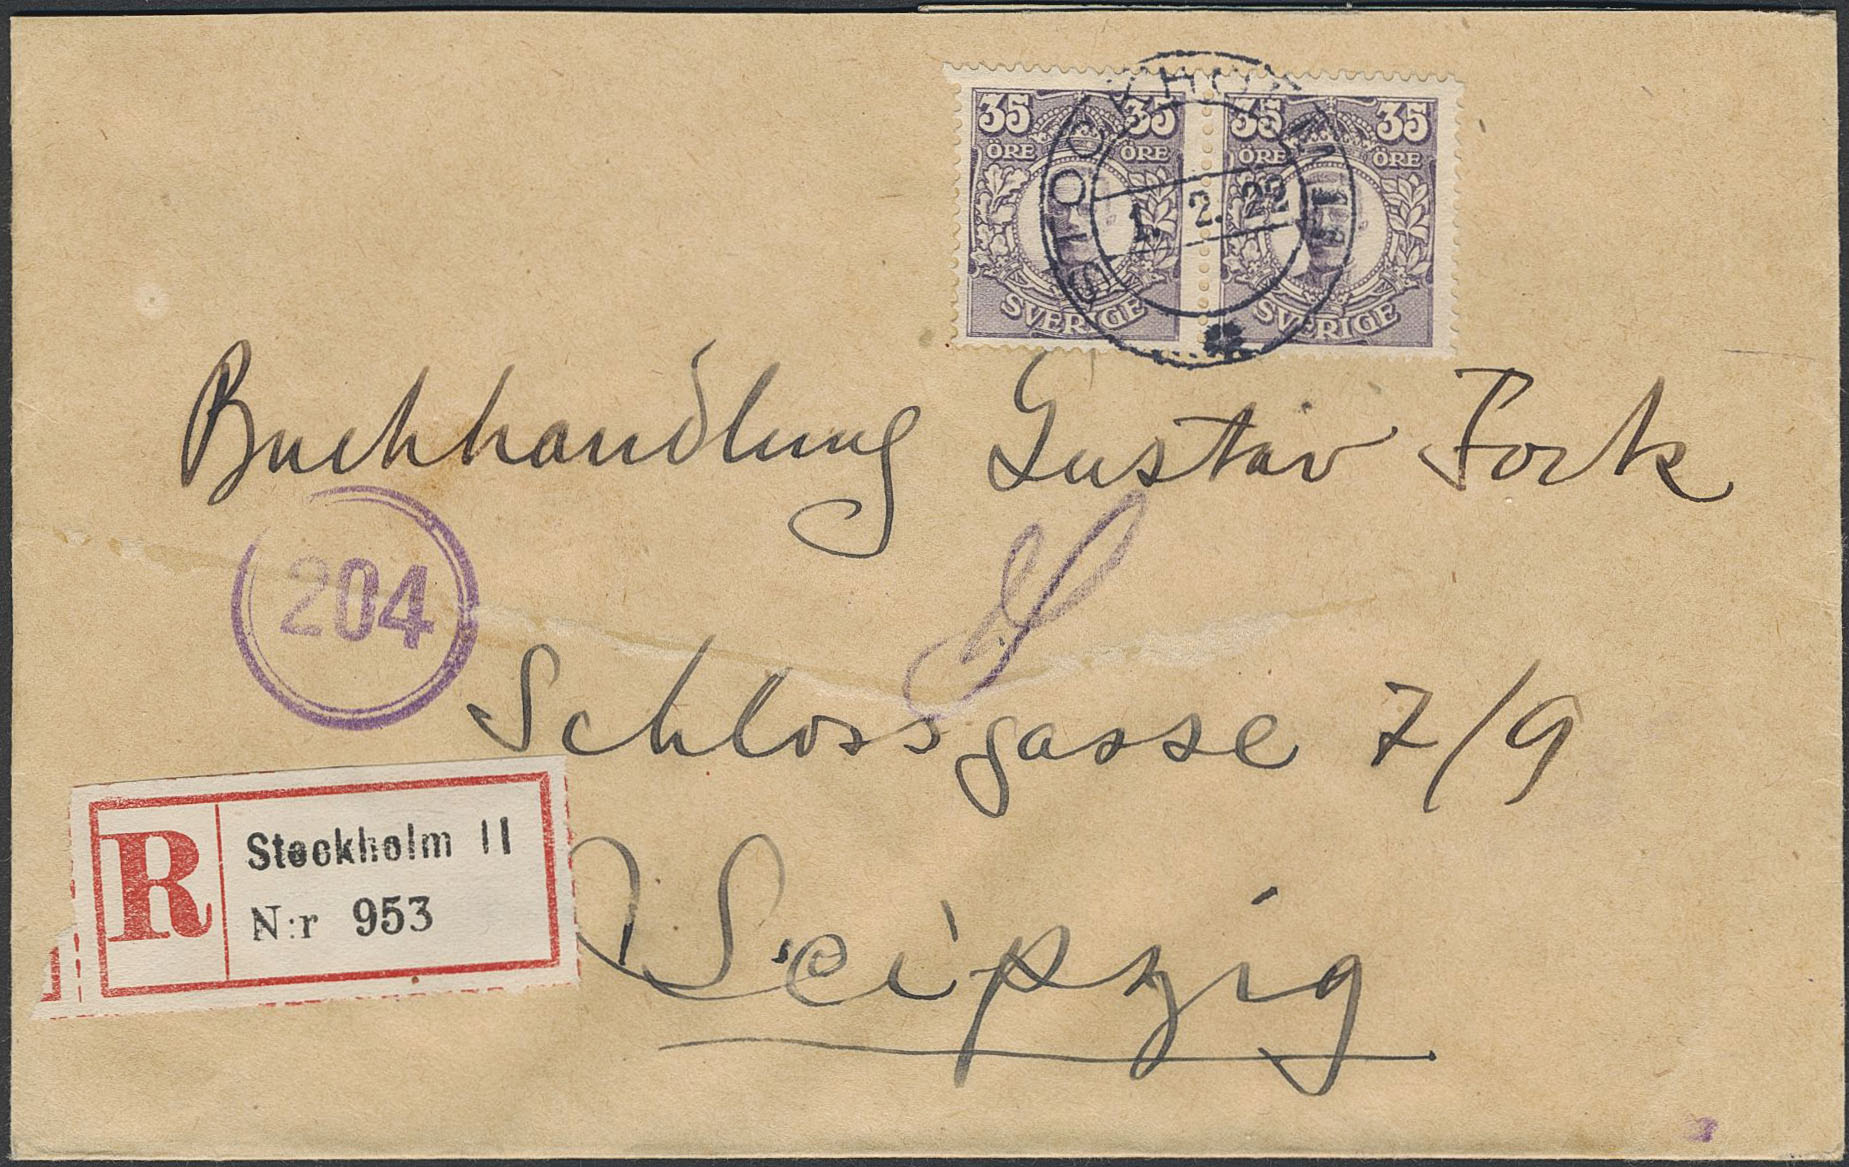 35 35 35 35
ÖRE ÖRE ÖRE ÖRE
SVERIGE SVERIGE
STOCKHOLM 11
1. 2. 22
Buchhandlung Gustav Fock
204
Schlossgasse 7/9
R Stockholm 11
N:r 953
Leipzig